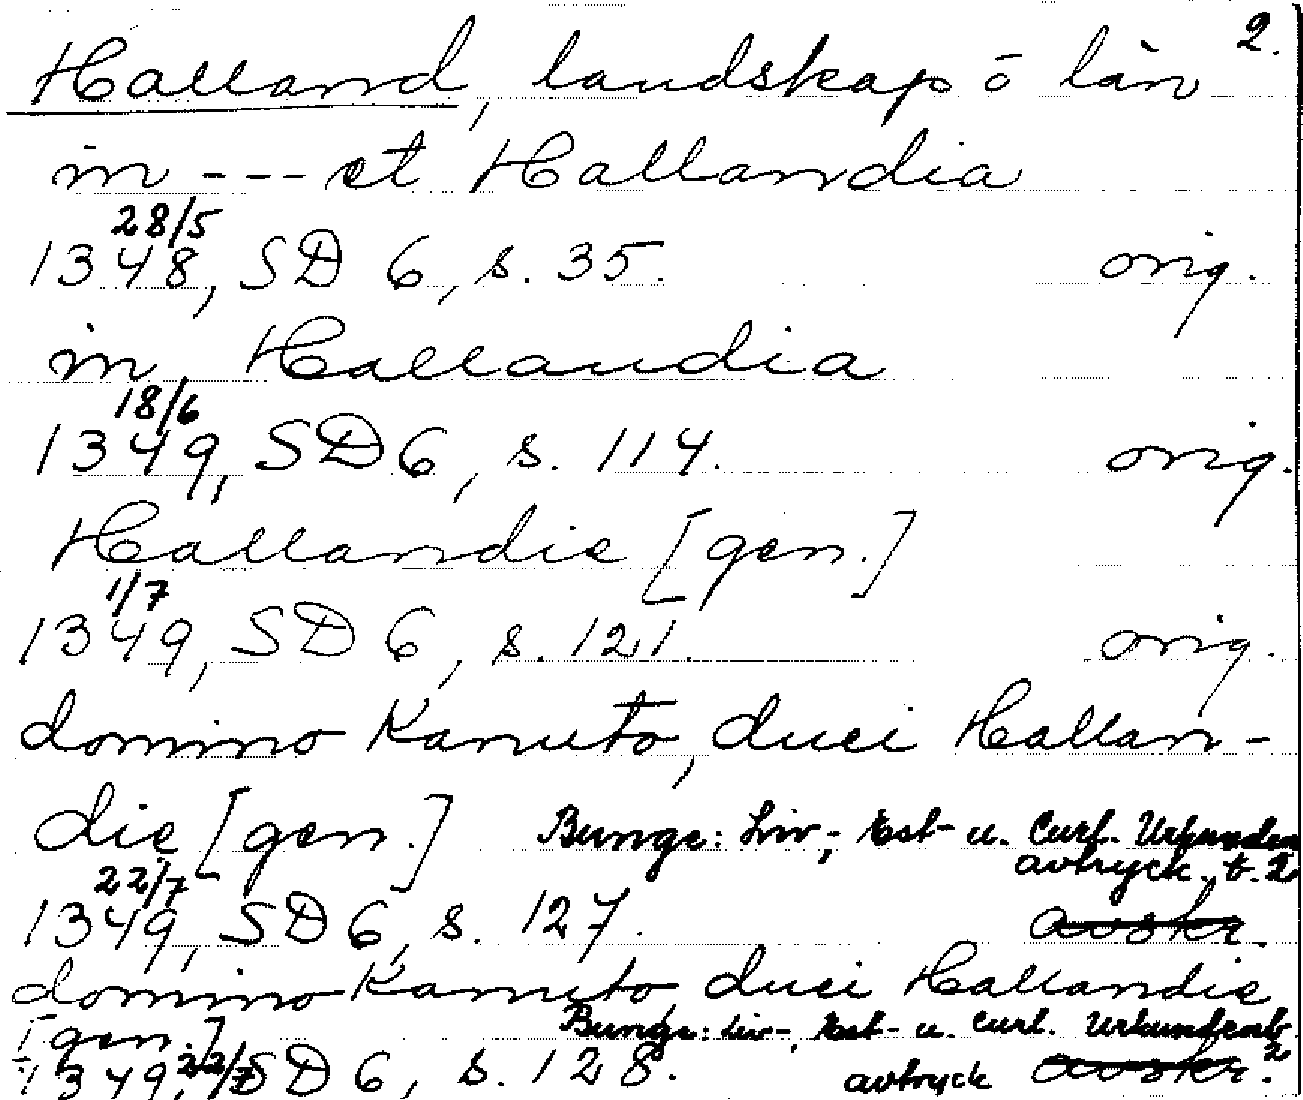 2.
Halland, landskap o län
in --- et Hallandia
28/5
1348, SD 6, s. 35. orig.
in Hallandia
18/6
1349, SD 6, s. 114. orig.
Hallandie [gen.]
1/7
1349, SD 6, s. 121. orig.
domino Kanuto, duci Hallan-
die [gen.] Bunge: Liv-, Est- u. Curl. Urkunden
avtryck. b. 2
22/7
1349, SD 6, s. 127. avskr.
domino Kanuto, duci Hallandie
[gen.] Bunge: Liv-, Est- u. Curl. Urkundenb.
22/7 2
1349, SD 6, s. 128. avtryck avskr.